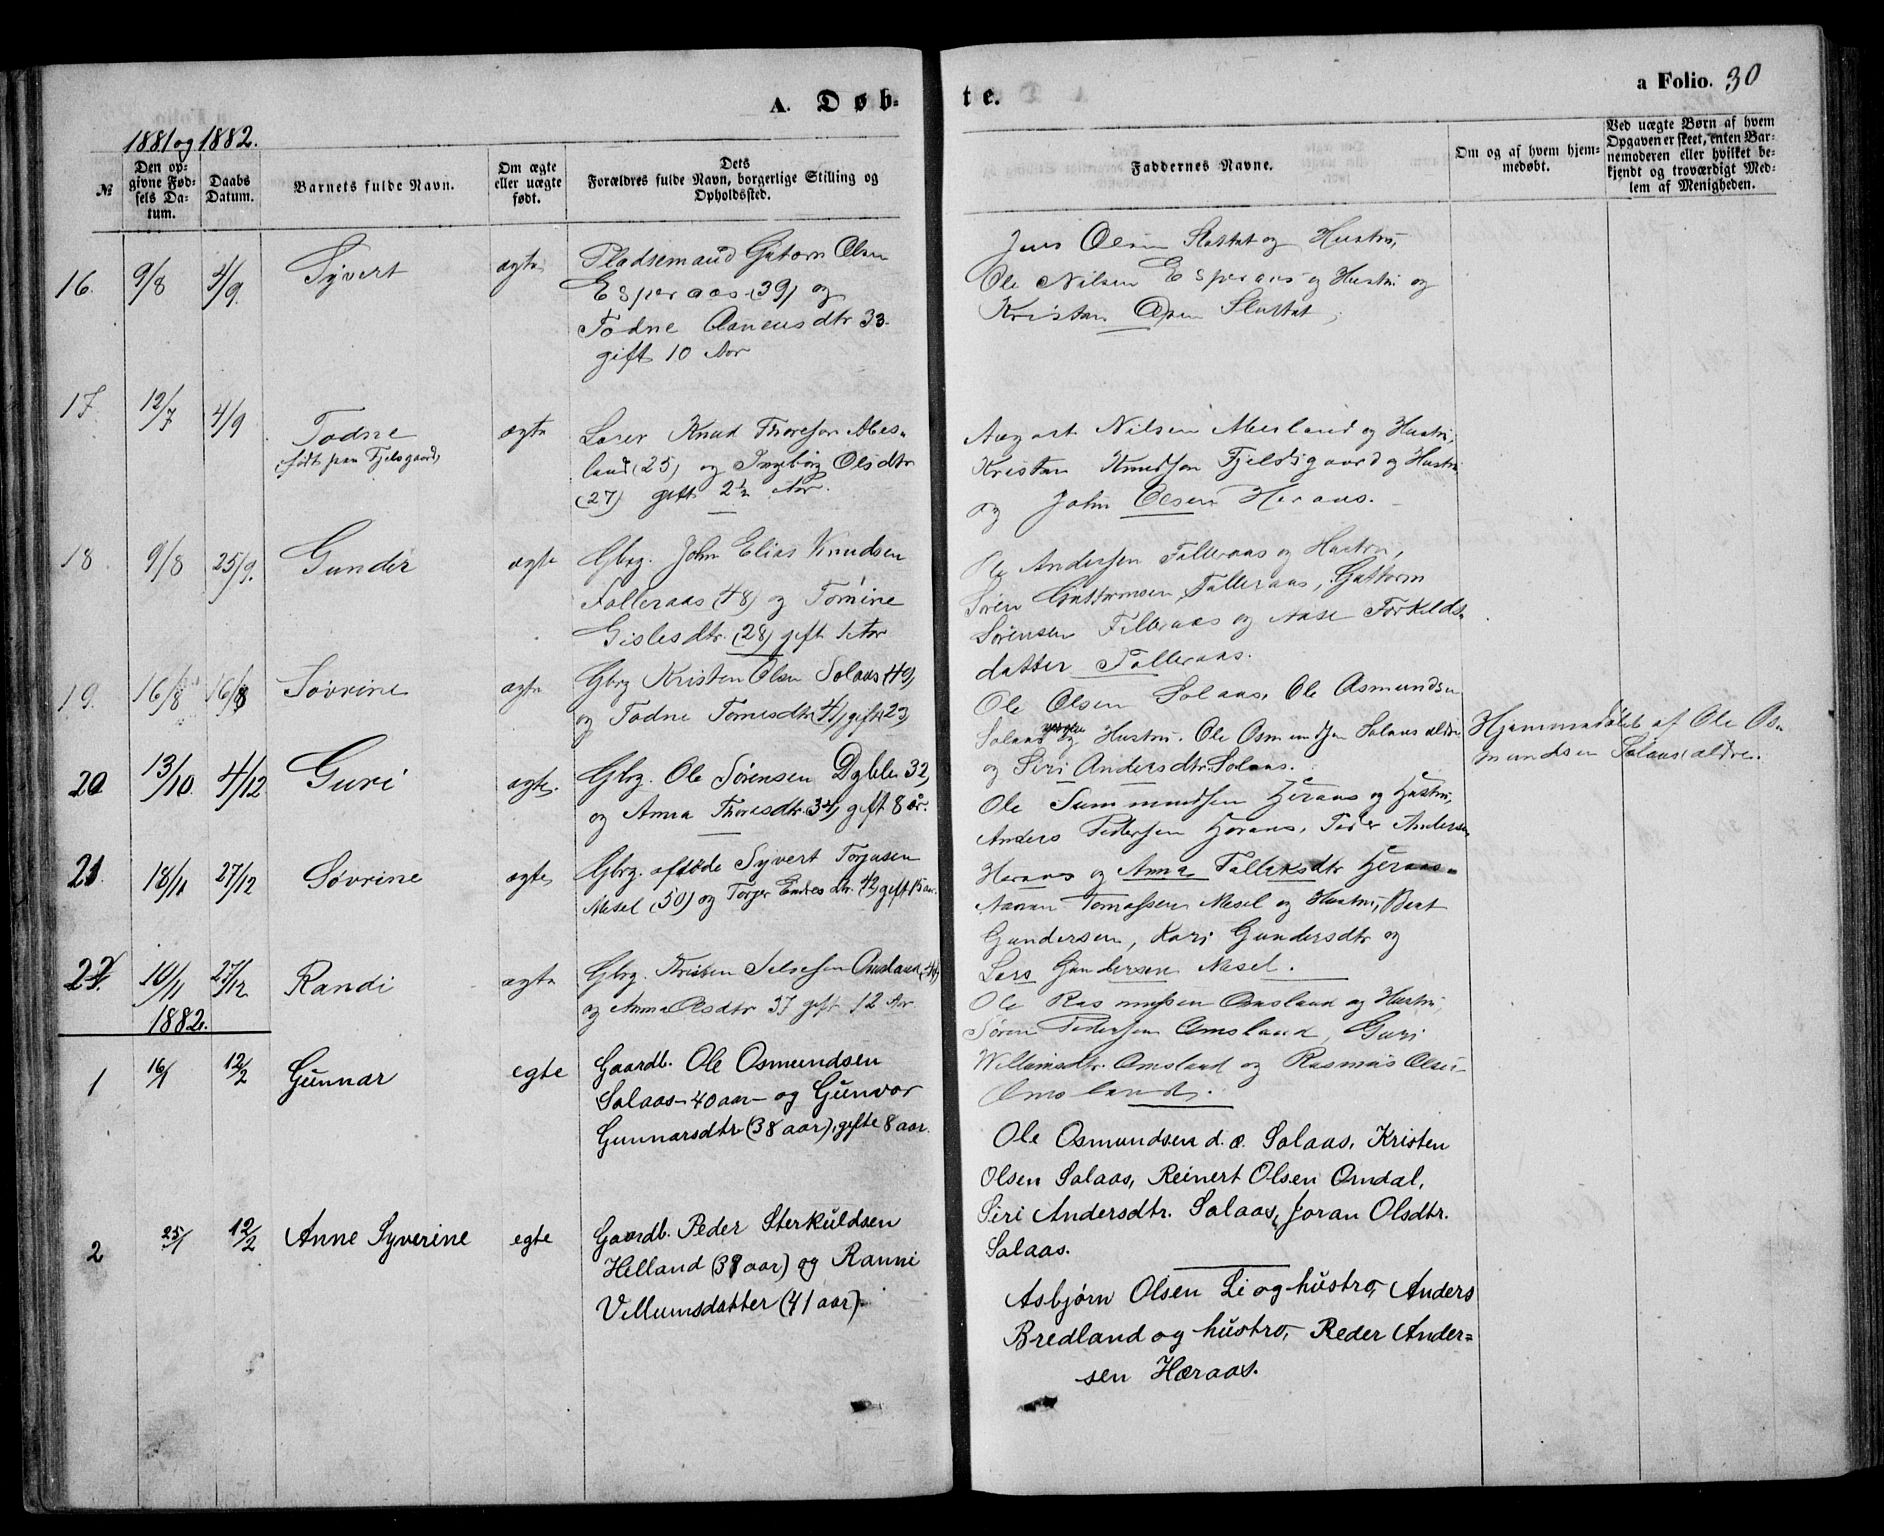 A. Døb-
te.
a Folio. 30
1881 og 1882.
№
Den op-
givne Fød-
sels Da-
tum.
Daabs
Datum.
Barnets fulde Navn.
Om ægte
eller uægte
født.
Dets
Forældres fulde Navn, borgerlige Stilling og
Opholdssted.
Faddernes Navne.
Om og af hvem hjem-
medøbt.
Ved uægte Børn af hvem
Opgaven er skeet, enten Bar-
nemoderen eller hvilket be-
kjendt og troværdigt Med-
lem af Menigheden.
16. 9/8 4/9. Syvert ægte
Pladsemand Guttorm Olsen
Esperaas (39) og
Todne Aanensdtr 33
gift 10 Aar
Jens Olsen og Hustru,
Ole Nilsen Esperaas og Hustru og
Kristen
17. 12/7 4/9 Todne ægte
født paa Fjelsgaard
Lærer Knud Thoresen Abes-
land (25) og Ingeborg Olsdtr
(27) gift 2½ Aar.
August Nilsen og Hustru,
Kristen Knudsen Fjeldsgaard og Hustru
og John Olsen Heraas.
18 9/8 25/9. Gunder ægte
Gbrg. John Elias Knudsen
Falleraas (48) og Tomine
Gislesdtr (28) gift 1 Aar
Ole Andersen Falleraas og Hustru,
Søren Guttormsen Falleraas, Guttorm
Sørensen Falleraas og Aase Torkelds-
datter Falleraas.
19. 16/8 16/8 Søvrine ægte
Gbrg Kristen Olsen Solaas 49,
og Todne Tomesdtr (41) gift 23
Ole Olsen Solaas, Ole Asmundsen
Solaas yngre og Hustru. Ole Osmundsen Solaas ældre
og Siri Andersdtr Solaas.
Hjemmedøbt af Ole Os-
mundsen Solaas, ældre.
20 13/10 4/12 Guri ægte.
Gbrg. Ole Sørensen Dyble 32,
og Anna Thoresdtr. 34, gift 8 år.
Ole Summundsen Heraas og Hustru,
Anders Pedersen Heraas, Peder Andersen
Heraas og Anna Falleksdtr Heraas.
21. 18/11 27/12 Søvrine ægte
Gbrg. afdøde Syvert Torjusen
Mesel (50) og Torjer Endresdtr. 42, gift 15 aar.
Aanen Tomassen Mesel og Hustru, Berit
Gundersen, Kari Gundersdtr og
Lars Gundersen Mesel.
22. 10/11 27/12 Randi ægte
Gbrg. Kristen Omland (46)
og Anna Olsdtr 37 gift 12 Aar
Ole Rasmussen Omsland og Hustru,
Søren Pedersen Omsland, Guri
Willumsdtr. Omsland og Rasmus Olsen
Omsland.
1882.
1 16/1 12/2 Gunnar egte
Gaardb. Ole Osmundsen
Solaas - 40 aar - og Gunvor
Gunnarsdtr (38 aar), gifte 8 aar.
Ole Osmundsen d. æ. Solaas, Kristen
Olsen Solaas, Reinert Olsen Omdal,
Siri Andersdtr. Solaas, Joran Olsdtr.
Solaas.
2 25/1 12/2 Anne Syverine egte
Gaardb. Peder Sterkuldsen
Helland (38 aar) og Ranni
Villumsdatter (41 aar).
Asbjørn Olsen Li og hustro, Anders
Bredland og hustro, Peder Ander=
sen Hæraas.